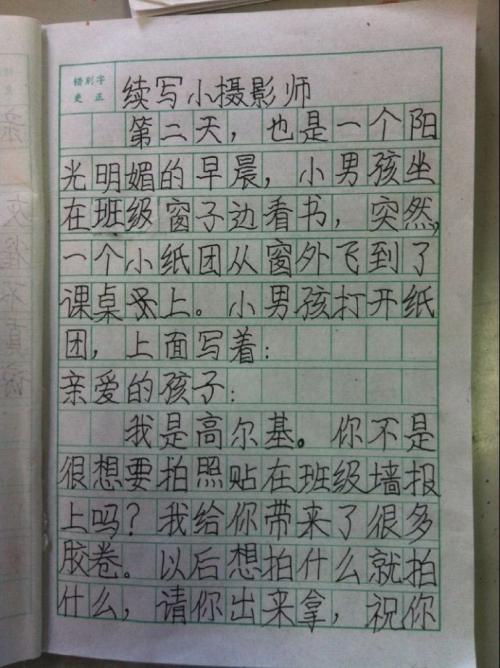 错别字
更正
续写小摄影师
第二天，也是一个阳
光明媚的早晨，小男孩坐
在班级窗子边看书，突然，
一个小纸团从窗外飞到了
课桌上。小男孩打开纸
团，上面写着：
亲爱的孩子：
我是高尔基。你不是
很想要拍照贴在班级墙报
上吗？我给你带来了很多
胶卷。以后想拍什么就拍
什么，请你出来拿，祝你